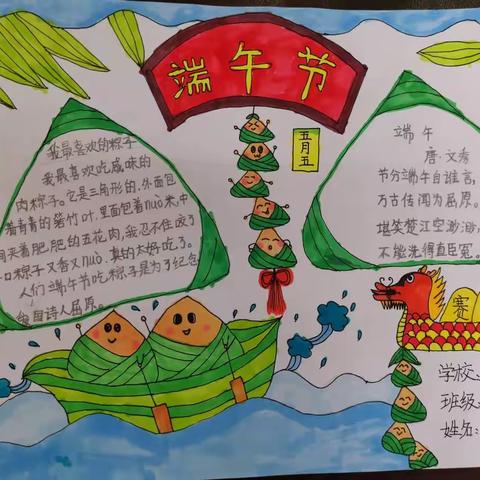 端午节
五月五
我最喜欢的粽子
我最喜欢吃咸味的
肉粽子。它是三角形的、外面包
着青青的箬竹叶,里面包着nuò米,中
间夹着肥肥的五花肉,我忍不住咬了
一口粽子又香又nuò,真的太好吃了。
人们端午节吃粽子是为了纪念
爱国诗人屈原。
端午
唐·文秀
节分端午自谁言,
万古传闻为屈原。
堪笑楚江空渺渺,
不能洗得直臣冤。
赛
学校:
班级:
姓名: